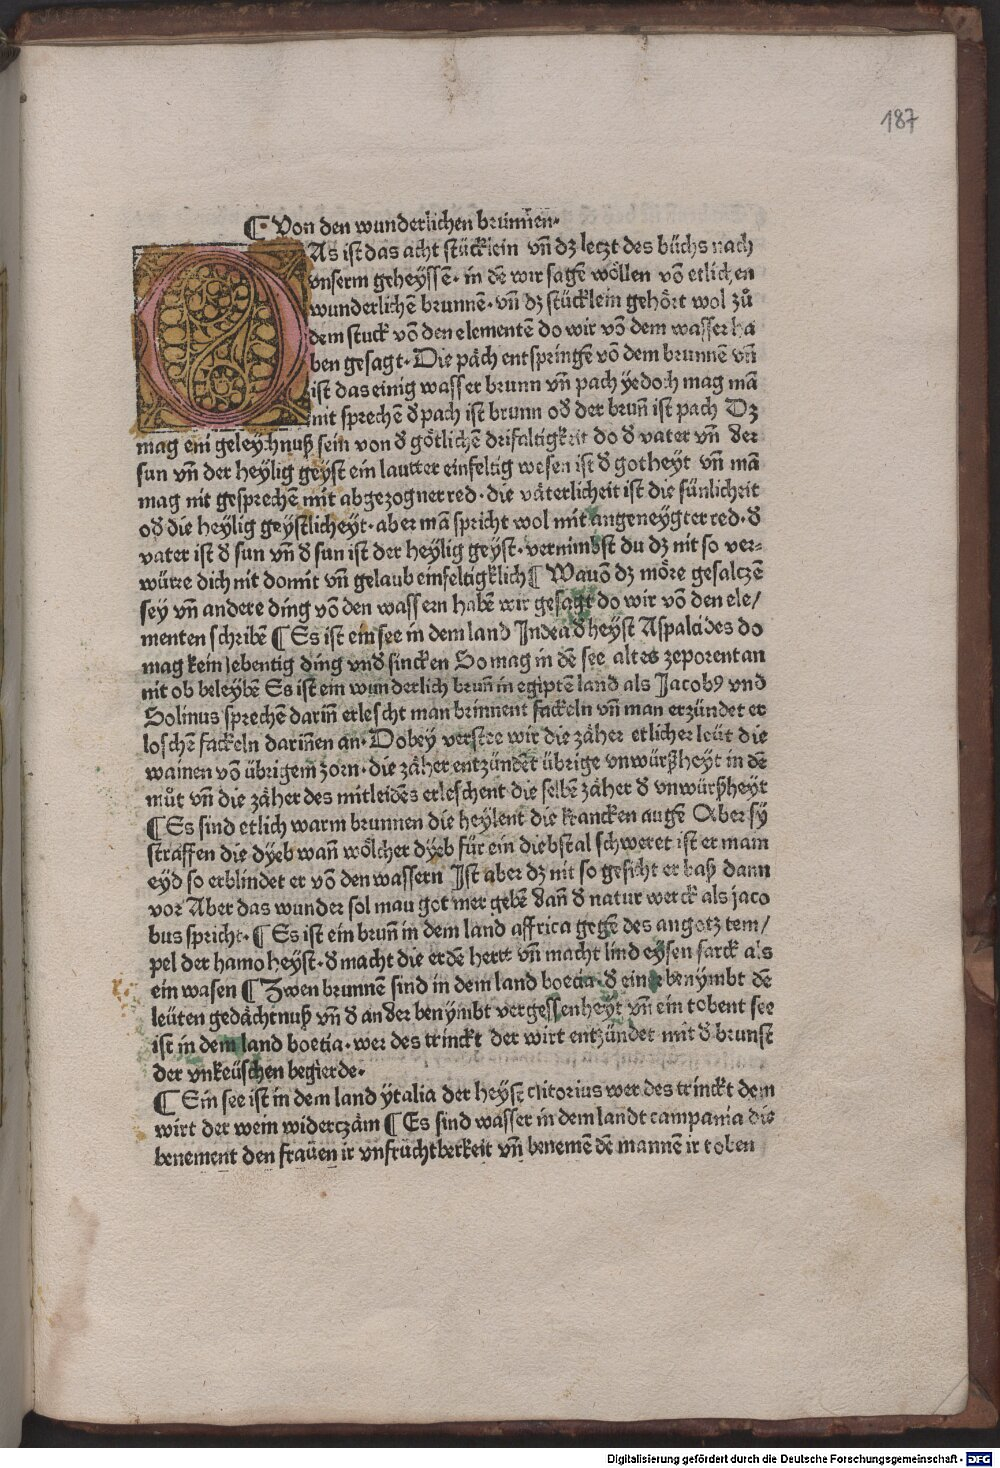 187
¶ Von den wunderlichen brunnen·
DAs ist das acht stücklein vn̄ dʒ leczt des büchs nach
vnserm geheyssē· in dē wir sagē wöllen vō etlichen
wunderlichē brunnē· vn̄ dʒ stücklein gehört wol zů
dem stuck vō den elementē do wir vō dem wasser ha
ben gesagt· Die päch entspringē vō dem brunnē vn̄
ist das einig wasser brunn vn̄ pach yedoch mag mā
nit sprechē đ pach ist brunn ođ der brun̄ ist pach Dʒ
mag ein geleychnuß sein von đ götlichen drifaltigkeit do đ vater vn̄ đer
sun vn̄ der heylig geyst ein lautter einfeltig wesen ist đ gotheyt vn̄ mā
mag nit gesprechē mit abgezogner red· die väterlicheit ist die sünlicheit
ođ die heylig geystlicheyt· aber mā spricht wol mit angeneygter red· đ
vater ist đ sun vn̄ đ sun ist der heylig geyst· vernimbst du dʒ nit so ver⸗
würre dich nit domit vn̄ gelaub einfeltigklich ¶ Wauō dʒ möre gesalczē
sey vn̄ andere ding vō den wassern habē wir gesagt do wir vō den ele/
menten schribē ¶ Es ist ein see in dem land Indea đ heyst Aspaltides do
mag kein lebentig ding vnđ sincken So mag in dē see altes zeporentan
nit ob beleybē Es ist ein wunderlich brun̄ in egiptē land als Jacobꝰ vnd
Solinus sprechē darin̄ erlescht man brinnent fackeln vn̄ man erzündet er
loschē fackeln darin̄en an· Dobey verstee wir die zäher etlicher leüt die
wainen vō übrigem zorn· die zäher entzündēt übrige vnwürßheyt in dē
můt vn̄ die zäher des mitleidēs erleschent die selbē zäher đ vnwürßheyt
¶ Es sind etlich warm brunnen die heylent die krancken augē Aber sy
straffen die dyeb wan̄ wölcher dyeb für ein diebstal schweret ist er main
eyd so erblindet er vō den wassern Ist aber dʒ nit so gesicht er baß dann
vor Aber das wunder sol man got mer gebē đan̄ đ natur werck als jaco
bus spricht· ¶ Es ist ein brun̄ in dem land affrica gegē des angotz tem/
pel der hamo heyst· đ macht die erdē hertt vn̄ macht lind eysen sarck als
ein wasen ¶ Zwen brunnē sind in dem land boetia· đ ein benymbt dē
leüten gedächtnuß vn̄ đ anđer benymbt vergessenheyt vn̄ ein tobent see
ist in dem land boetia· wer des trinckt der wirt entzündet mit đ brunst
der vnkeüschen begierde·
¶ Ein see ist in dem land ytalia der heyst clitorius wer des trinckt dem
wirt der wein widerczäm ¶ Es sind wasser in dem landt campania die
benement den fraüen ir vnfrüchtberkeit vn̄ benemē dē mannē ir toben
Digitalisierung gefördert durch die Deutsche Forschungsgemeinschaft - DFG